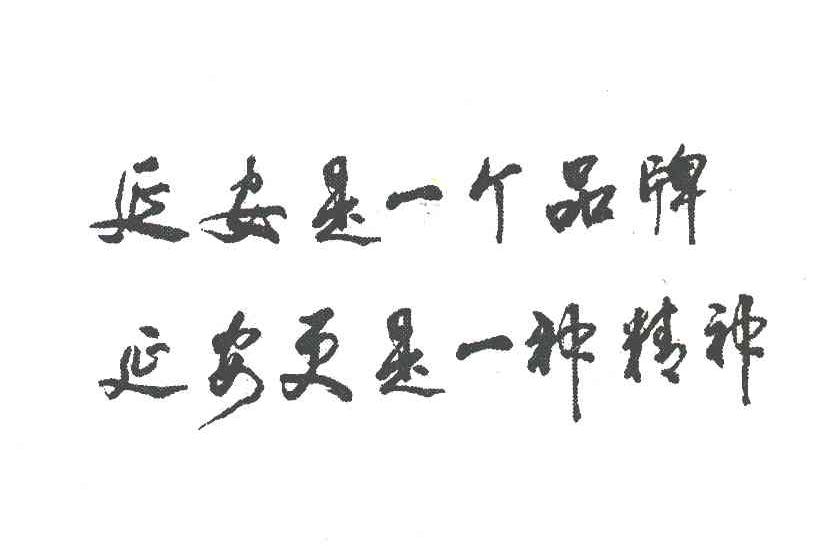 延安是一个品牌
延安更是一种精神